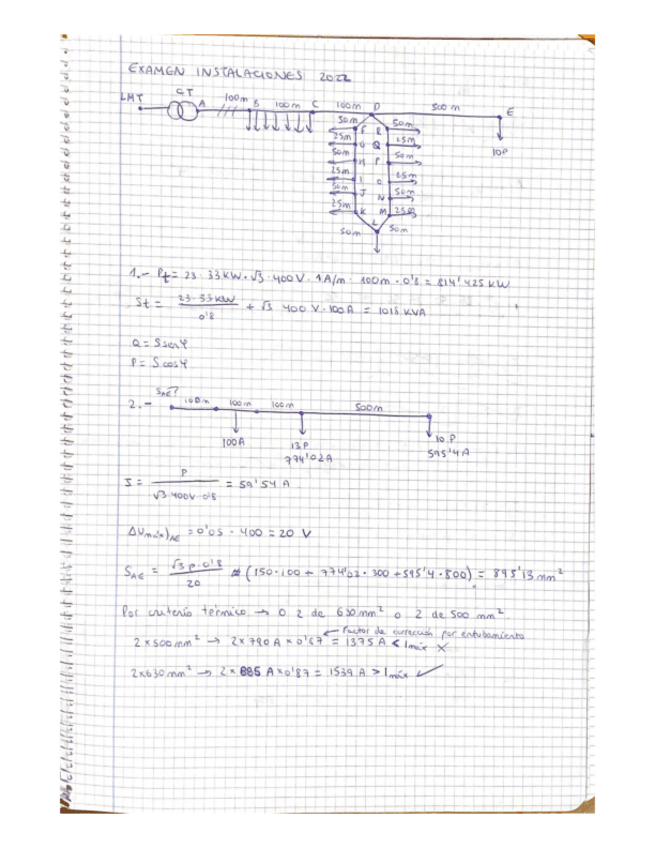 EXAMEN INSTALACIONES 2022
LMT CT A 100m B 100m C 100m D 500m E
50m F R 50m
25m G Q 25m 10P
50m H P 50m
25m I O 25m
50m J N 50m
25m K M 25m
50m L 50m
1.- Pt = 23 · 33 KW + √3 · 400 V · 1 A/m · 100m · 0'8 = 814'425 KW
St = 23·33KW / 0'8 + √3 400 V · 100A = 1018 KVA
Q = S senφ
P = S cosφ
2.- SAE? 100m 100m 100m 500m
100A 13P 774'02A 10 P 595'4A
I = P / √3 400V 0'8 = 59'54 A
ΔUmáx)AE = 0'05 · 400 = 20 V
SAE = √3 ρ·0'8 / 20 (150·100 + 774'02·300 + 595'4·800) = 895'13 mm²
Por criterio térmico → o 2 de 630 mm² o 2 de 500 mm²
← Factor de corrección por entubamiento
2 x 500 mm² → 2 x 790 A x 0'87 = 1375 A < Imáx X
2x630 mm² → 2 x 885 A x 0'87 = 1539 A > Imáx ✓